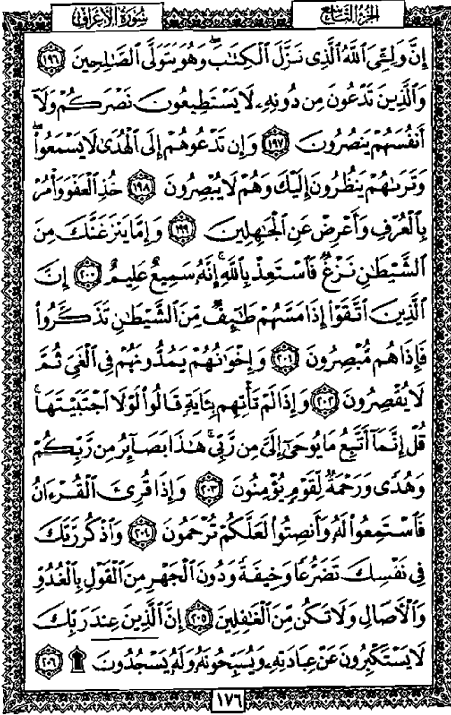 الجزء التاسع سورة الأعراف
إِنَّ وَلِـِّۧيَ ٱللَّهُ ٱلَّذِي نَزَّلَ ٱلۡكِتَٰبَۖ وَهُوَ يَتَوَلَّى ٱلصَّٰلِحِينَ ١٩٦
وَٱلَّذِينَ تَدۡعُونَ مِن دُونِهِۦ لَا يَسۡتَطِيعُونَ نَصۡرَكُمۡ وَلَآ
أَنفُسَهُمۡ يَنصُرُونَ ١٩٧ وَإِن تَدۡعُوهُمۡ إِلَى ٱلۡهُدَىٰ لَا يَسۡمَعُواْۖ
وَتَرَىٰهُمۡ يَنظُرُونَ إِلَيۡكَ وَهُمۡ لَا يُبۡصِرُونَ ١٩٨ خُذِ ٱلۡعَفۡوَ وَأۡمُرۡ
بِٱلۡعُرۡفِ وَأَعۡرِضۡ عَنِ ٱلۡجَٰهِلِينَ ١٩٩ وَإِمَّا يَنزَغَنَّكَ مِنَ
ٱلشَّيۡطَٰنِ نَزۡغٞ فَٱسۡتَعِذۡ بِٱللَّهِۚ إِنَّهُۥ سَمِيعٌ عَلِيمٌ ٢٠٠ إِنَّ
ٱلَّذِينَ ٱتَّقَوۡاْ إِذَا مَسَّهُمۡ طَٰٓئِفٞ مِّنَ ٱلشَّيۡطَٰنِ تَذَكَّرُواْ
فَإِذَا هُم مُّبۡصِرُونَ ٢٠١ وَإِخۡوَٰنُهُمۡ يَمُدُّونَهُمۡ فِي ٱلۡغَيِّ ثُمَّ
لَا يُقۡصِرُونَ ٢٠٢ وَإِذَا لَمۡ تَأۡتِهِم بِـَٔايَةٖ قَالُواْ لَوۡلَا ٱجۡتَبَيۡتَهَاۚ
قُلۡ إِنَّمَآ أَتَّبِعُ مَا يُوحَىٰٓ إِلَيَّ مِن رَّبِّيۚ هَٰذَا بَصَآئِرُ مِن رَّبِّكُمۡ
وَهُدٗى وَرَحۡمَةٞ لِّقَوۡمٖ يُؤۡمِنُونَ ٢٠٣ وَإِذَا قُرِئَ ٱلۡقُرۡءَانُ
فَٱسۡتَمِعُواْ لَهُۥ وَأَنصِتُواْ لَعَلَّكُمۡ تُرۡحَمُونَ ٢٠٤ وَٱذۡكُر رَّبَّكَ
فِي نَفۡسِكَ تَضَرُّعٗا وَخِيفَةٗ وَدُونَ ٱلۡجَهۡرِ مِنَ ٱلۡقَوۡلِ بِٱلۡغُدُوِّ
وَٱلۡأٓصَالِ وَلَا تَكُن مِّنَ ٱلۡغَٰفِلِينَ ٢٠٥ إِنَّ ٱلَّذِينَ عِندَ رَبِّكَ
لَا يَسۡتَكۡبِرُونَ عَنۡ عِبَادَتِهِۦ وَيُسَبِّحُونَهُۥ وَلَهُۥ يَسۡجُدُونَ ۩ ٢٠٦
١٧٦